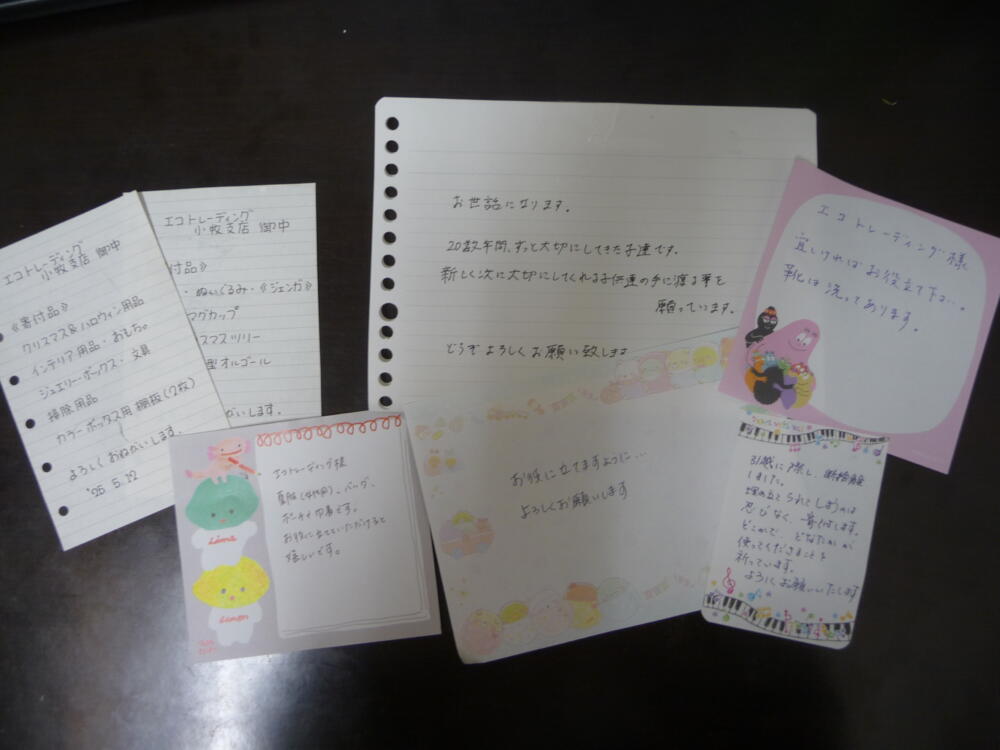 エコトレーディング
小牧支店 御中
《寄付品》
クリスマス&ハロウィン用品
インテリア用品・おもちゃ。
ジュエリーボックス・文具
掃除用品
カラーボックス用 棚板(2枚)
よろしくおねがいします。
'25.5.12
エコトレーディング
小牧支店 御中
付品》
・ぬいぐるみ・《ジェンガ》
マグカップ
スマスツリー
型オルゴール
がいします。
お世話になります。
20数年間、ずっと大切にしてきた子達です。
新しく次に大切にしてくれる子供達の手に渡る事を
願っています。
どうぞよろしくお願い致しま
エコトレーディング様
宜しければお役立て下…。
靴は洗ってあります。
エコトレーディング様
夏服(4代用)、バッグ、
ポーチ 等です。
お役に立ていただけると
嬉しいです。
Lime
Lemon
お役に立てますように…
よろしくお願いします
引越に際し、断捨離
しました。
埋め立てられてしまうのは
忍びなく、寄付します。
どこかで、どなたかが
使ってくださることを
祈っています。
よろしくお願いいたします